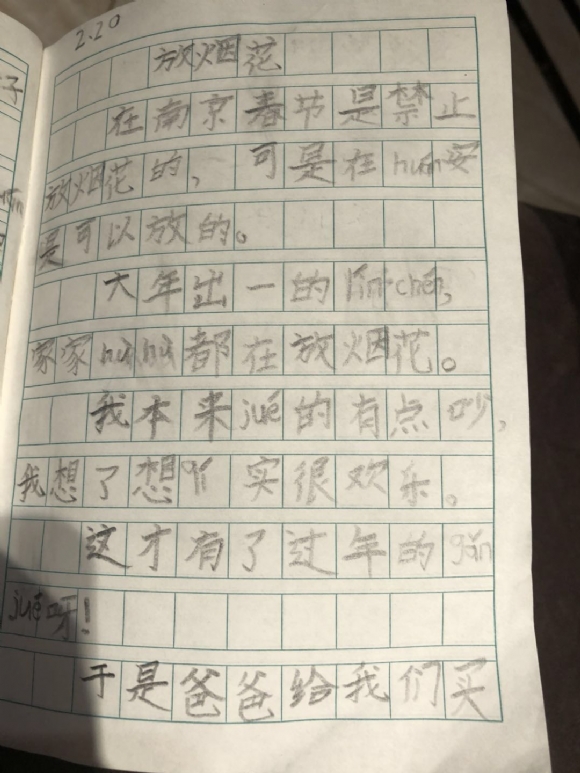 2.20
放烟花
在南京春节是禁止
放烟花的，可是在huái安
是可以放的。
大年出一的lín chén，
家家hù hù都在放烟花。
我本来jué的有点吵，
我想了想 实很欢乐。
这才有了过年的gǎn
jué呀！
于是爸爸给我们买